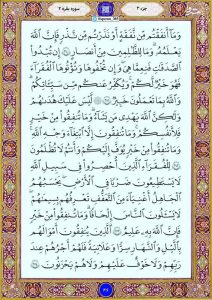 جزء ۳
سوره بقره ۲
وَمَا أَنْفَقْتُمْ مِنْ نَفَقَةٍ أَوْ نَذَرْتُمْ مِنْ نَذْرٍ فَإِنَّ اللَّهَ
يَعْلَمُهُ وَمَا لِلظَّالِمِينَ مِنْ أَنْصَارٍ إِنْ تُبْدُوا
الصَّدَقَاتِ فَنِعِمَّا هِيَ وَإِنْ تُخْفُوهَا وَتُؤْتُوهَا الْفُقَرَاءَ
فَهُوَ خَيْرٌ لَكُمْ وَيُكَفِّرُ عَنْكُمْ مِنْ سَيِّئَاتِكُمْ
وَاللَّهُ بِمَا تَعْمَلُونَ خَبِيرٌ لَيْسَ عَلَيْكَ هُدَاهُمْ
وَلَكِنَّ اللَّهَ يَهْدِي مَنْ يَشَاءُ وَمَا تُنْفِقُوا مِنْ خَيْرٍ
فَلِأَنْفُسِكُمْ وَمَا تُنْفِقُونَ إِلَّا ابْتِغَاءَ وَجْهِ اللَّهِ
وَمَا تُنْفِقُوا مِنْ خَيْرٍ يُوَفَّ إِلَيْكُمْ وَأَنْتُمْ لَا تُظْلَمُونَ
لِلْفُقَرَاءِ الَّذِينَ أُحْصِرُوا فِي سَبِيلِ اللَّهِ
لَا يَسْتَطِيعُونَ ضَرْبًا فِي الْأَرْضِ يَحْسَبُهُمُ
الْجَاهِلُ أَغْنِيَاءَ مِنَ التَّعَفُّفِ تَعْرِفُهُمْ بِسِيمَاهُمْ
لَا يَسْأَلُونَ النَّاسَ إِلْحَافًا وَمَا تُنْفِقُوا مِنْ خَيْرٍ
فَإِنَّ اللَّهَ بِهِ عَلِيمٌ الَّذِينَ يُنْفِقُونَ أَمْوَالَهُمْ
بِاللَّيْلِ وَالنَّهَارِ سِرًّا وَعَلَانِيَةً فَلَهُمْ أَجْرُهُمْ عِنْدَ
رَبِّهِمْ وَلَا خَوْفٌ عَلَيْهِمْ وَلَا هُمْ يَحْزَنُونَ